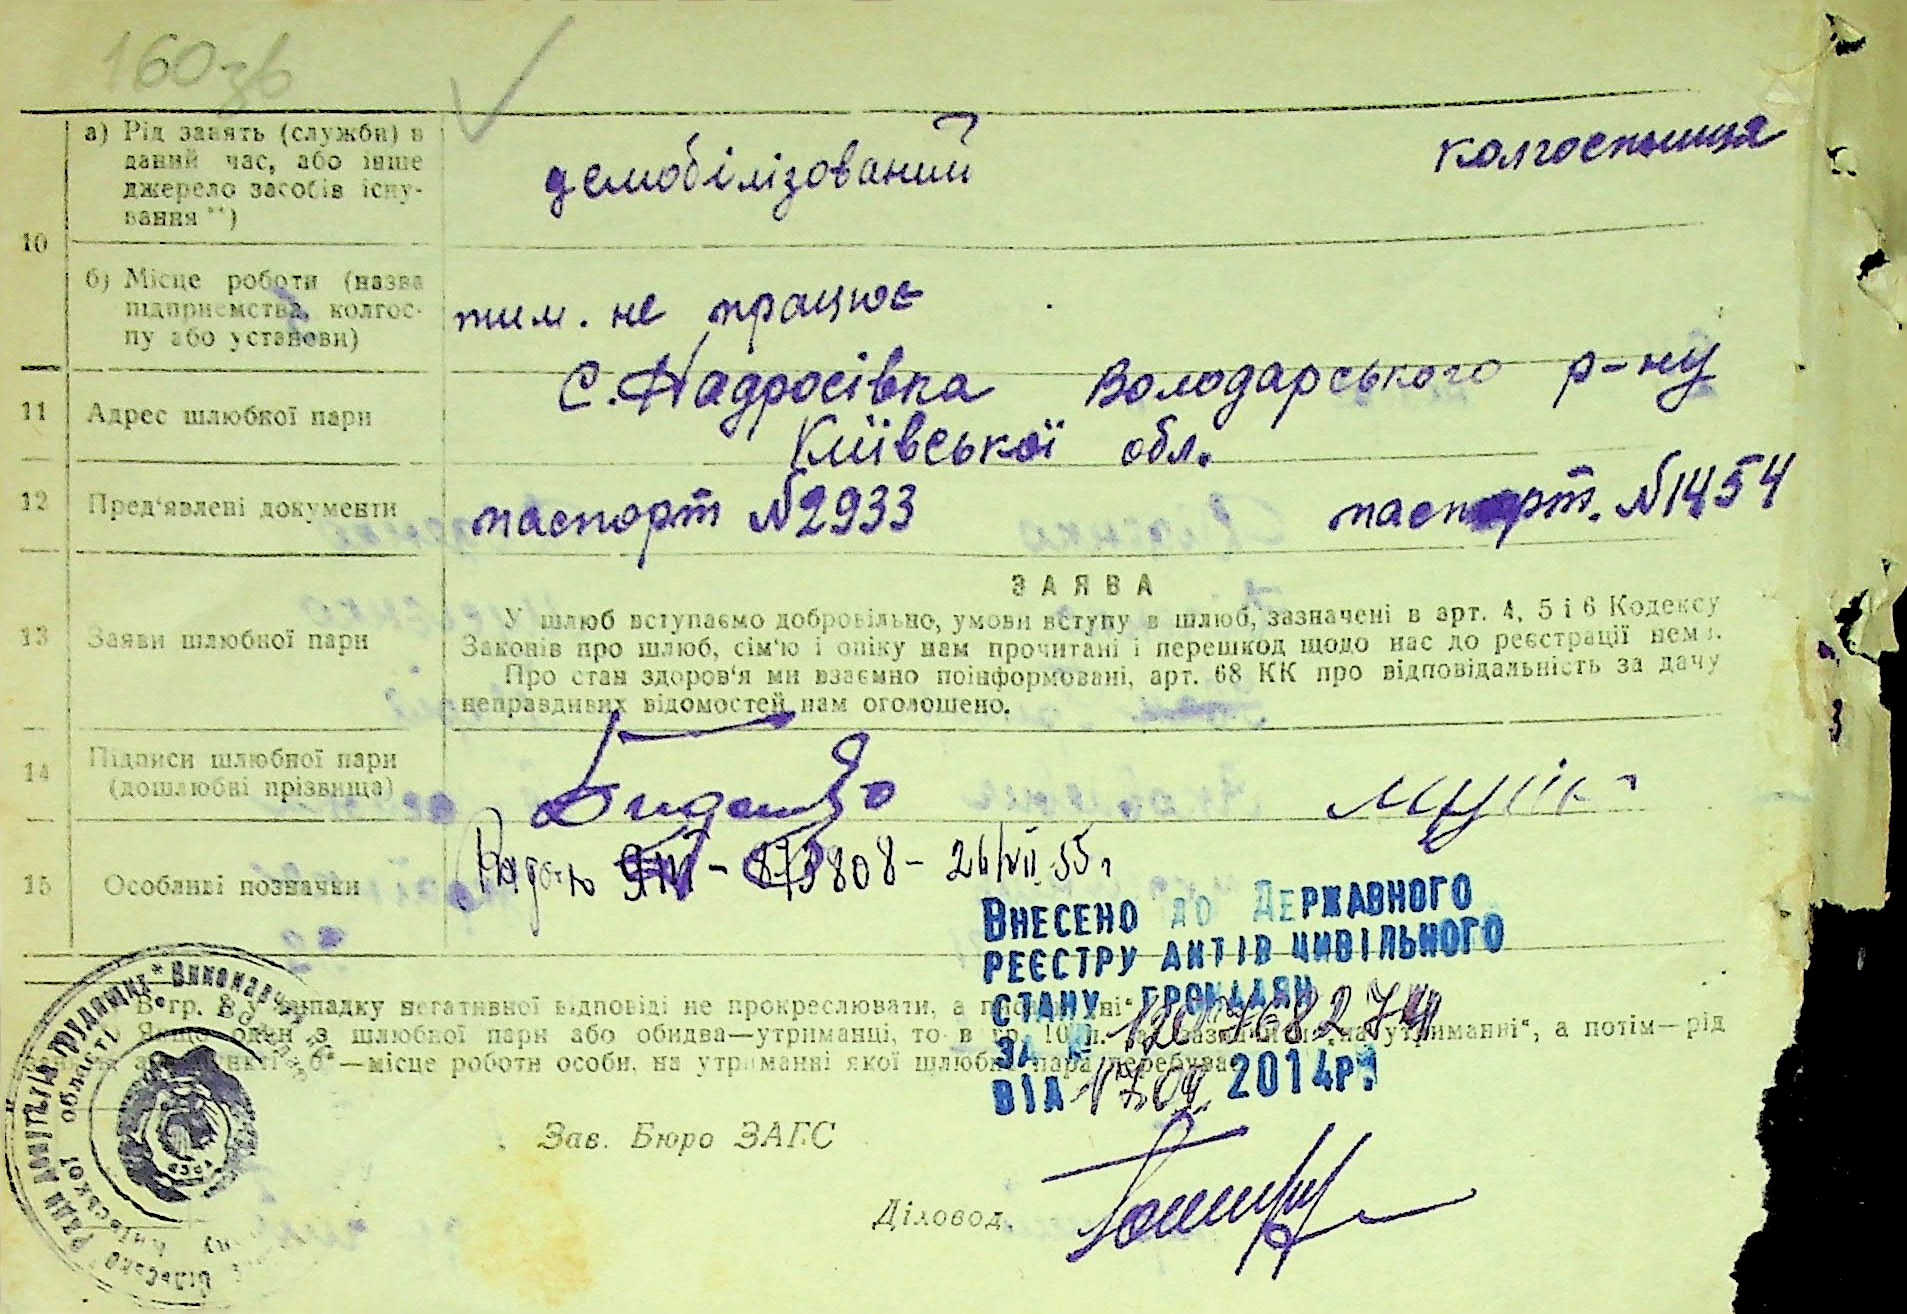 160зв
10
а) Рід занять (служби) в
даний час, або інше
джерело засобів існу-
вання **)
демобілізований
колгоспниця
б) Місце роботи (назва
підприємства, колгос-
пу або установи)
тим. не працює
11
Адрес шлюбної пари
С. Надросівка Володарського р-ну
Київської обл.
12
Пред'явлені документи
паспорт №2933
паспорт. №1454
13
Заяви шлюбної пари
ЗАЯВА
У шлюб вступаємо добровільно, умови вступу в шлюб, зазначені в арт. 4, 5 і 6 Кодексу
Законів про шлюб, сім'ю і опіку нам прочитані і перешкод щодо нас до реєстрації нема.
Про стан здоров'я ми взаємно поінформовані, арт. 68 КК про відповідальність за дачу
неправдивих відомостей нам оголошено.
14
Підписи шлюбної пари
(дошлюбні прізвища)
15
Особливі позначки
808 - 26/VII 55 г
ВНЕСЕНО ДО ДЕРЖАВНОГО
РЕЄСТРУ АКТІВ ЦИВІЛЬНОГО
СТАНУ ГРОМАДЯН
ЗА №
ВІД 2014р.
В гр. 8 у випадку негативної відповіді не прокреслювати, а
Якщо один з шлюбної пари або обидва—утриманці, то в гр. 10 п. утриманні", а потім—рід
„б"—місце роботи особи, на утриманні якої шлюбна пара перебуває
Зав. Бюро ЗАГС
Діловод